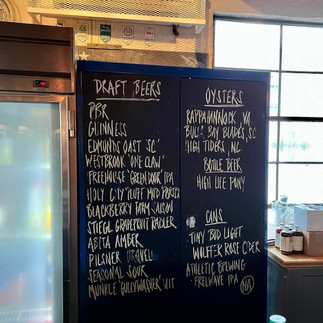 DRAFT BEERS
PBR
GUINNESS
EDMUNDS OAST SC
WESTBROOK "ONE CLAW"
FREEHOUSE "GREEN DOOR" IPA
HOLY CITY PLUFF MUD PORTER
BLACKBERRY FARM SAISON
STIEGL GRAPEFRUIT RADLER
ABITA AMBER
PILSNER URQUELL
SEASONAL SOUR
MUNKLE "GULLYWASHER" WIT
OYSTERS
RAPPAHANNOCK, VA
BULLS BAY BLADES, SC
HIGH TIDERS, NC
BOTTLE BEER
HIGH LIFE PONY
CANS
TINY BUD LIGHT
WÖLFFER ROSE CIDER
ATHLETIC BREWING
- FREEWAVE IPA NA